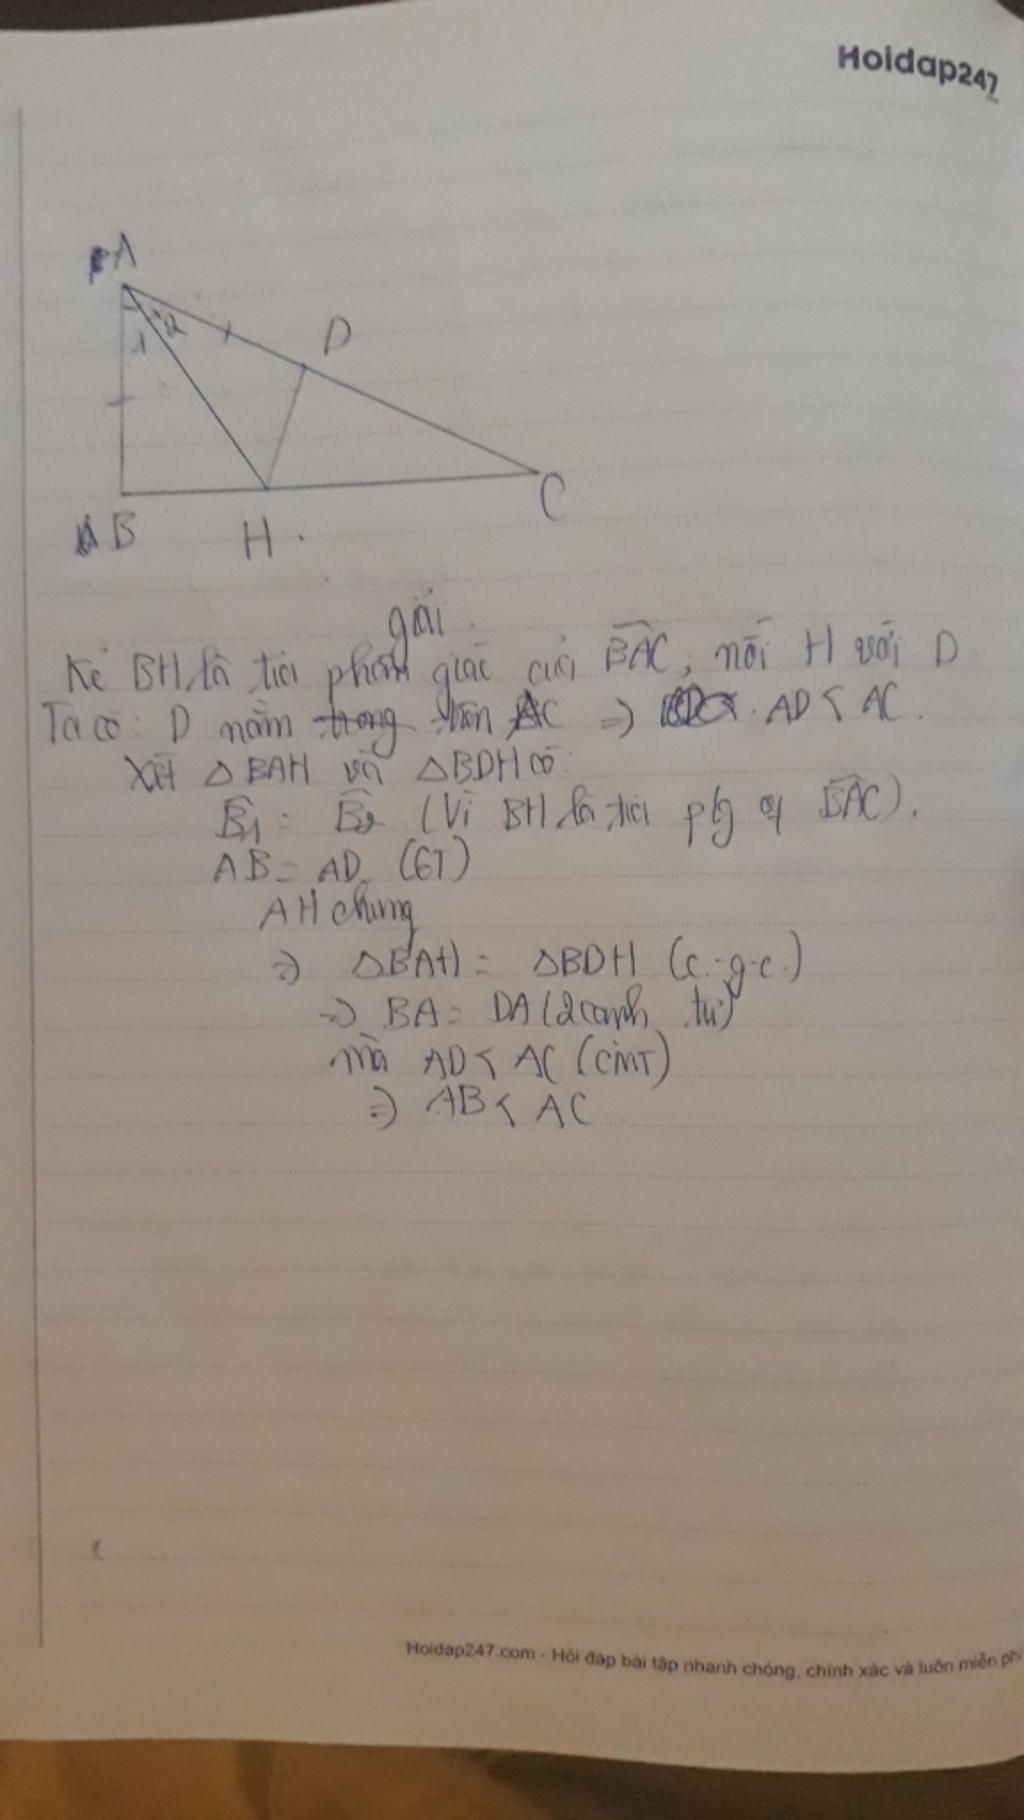 Hoidap247
A
1
2
D
B
H
C
giải.
Kẻ BH là tia phân giác của BAC, nối H với D
Ta có: D nằm trong trên AC => AD < AC.
Xét △BAH và △BDH có:
B1 = B2 (Vì BH là tia p/g of BAC).
AB = AD (GT)
AH chung
=> △BAH = △BDH (c.g.c.)
=> BA = DA (2 cạnh tư)
mà AD < AC (CMT)
=> AB < AC
Hoidap247.com - Hỏi đáp bài tập nhanh chóng, chính xác và luôn miễn phí